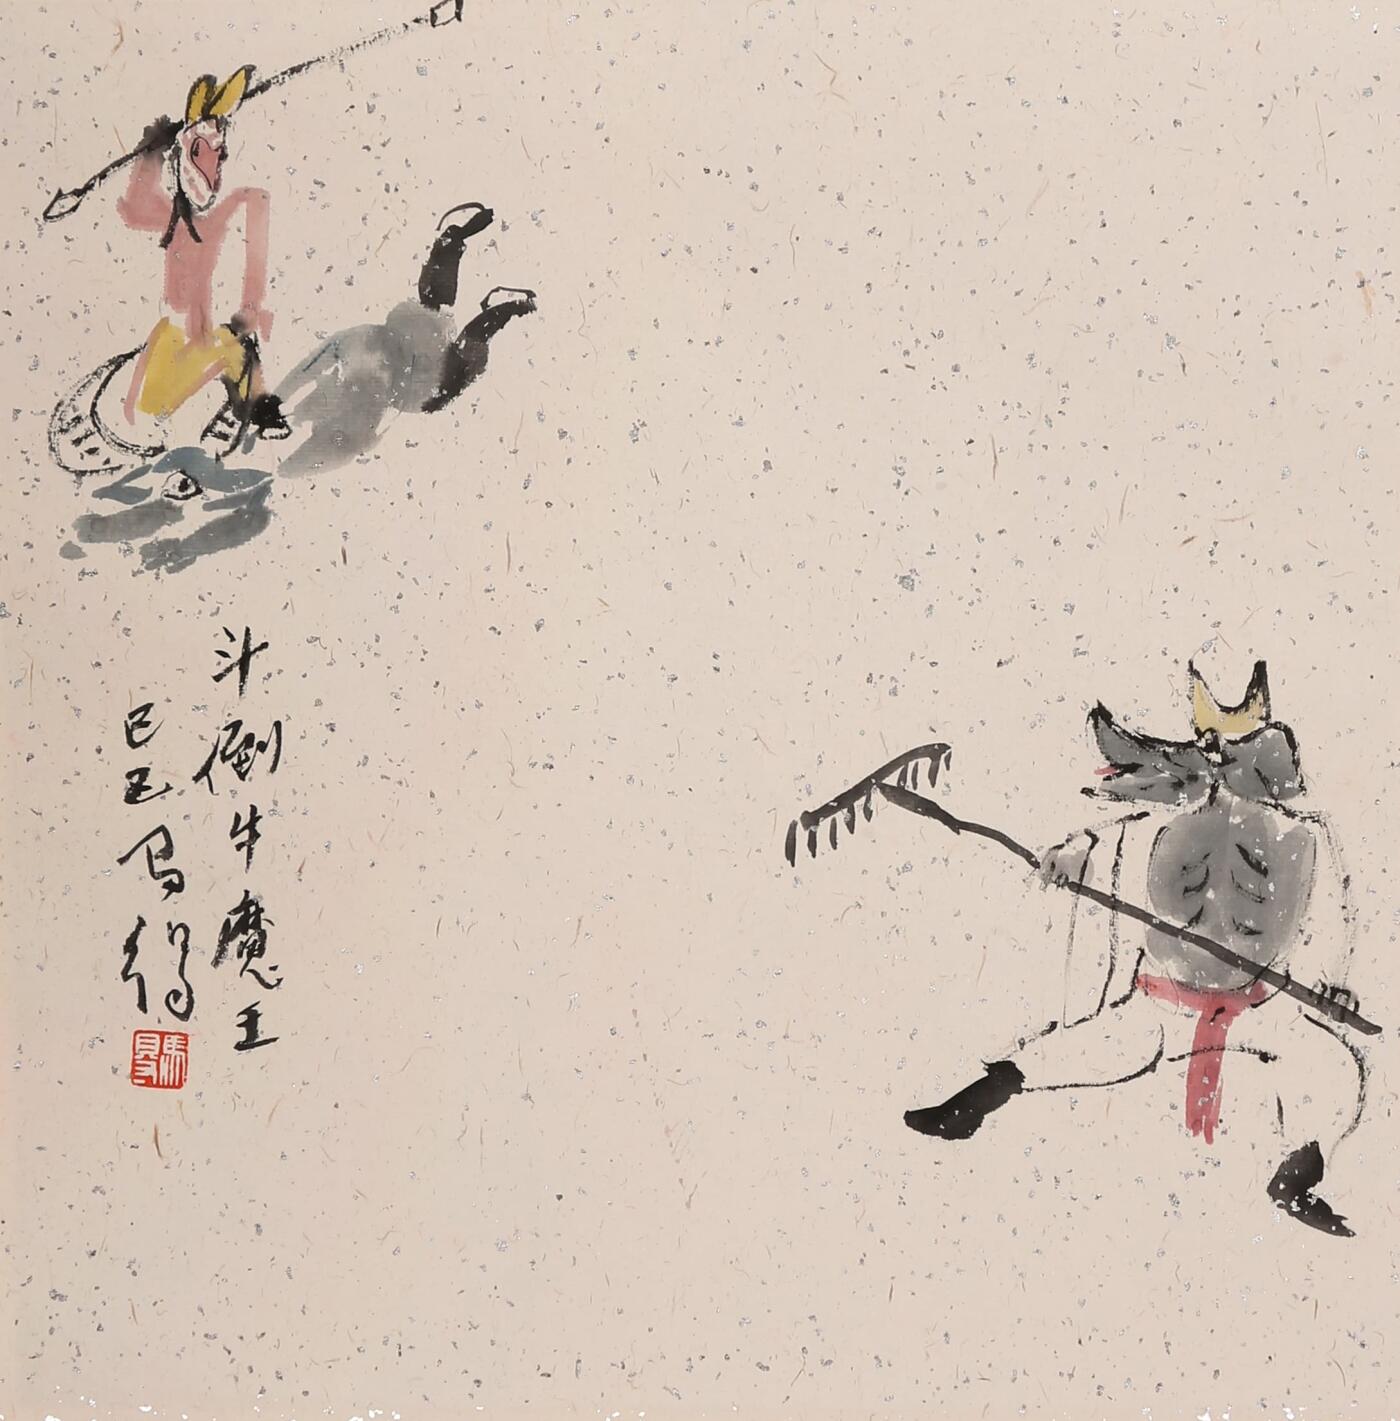 斗倒牛魔王
己巳马得
馬得